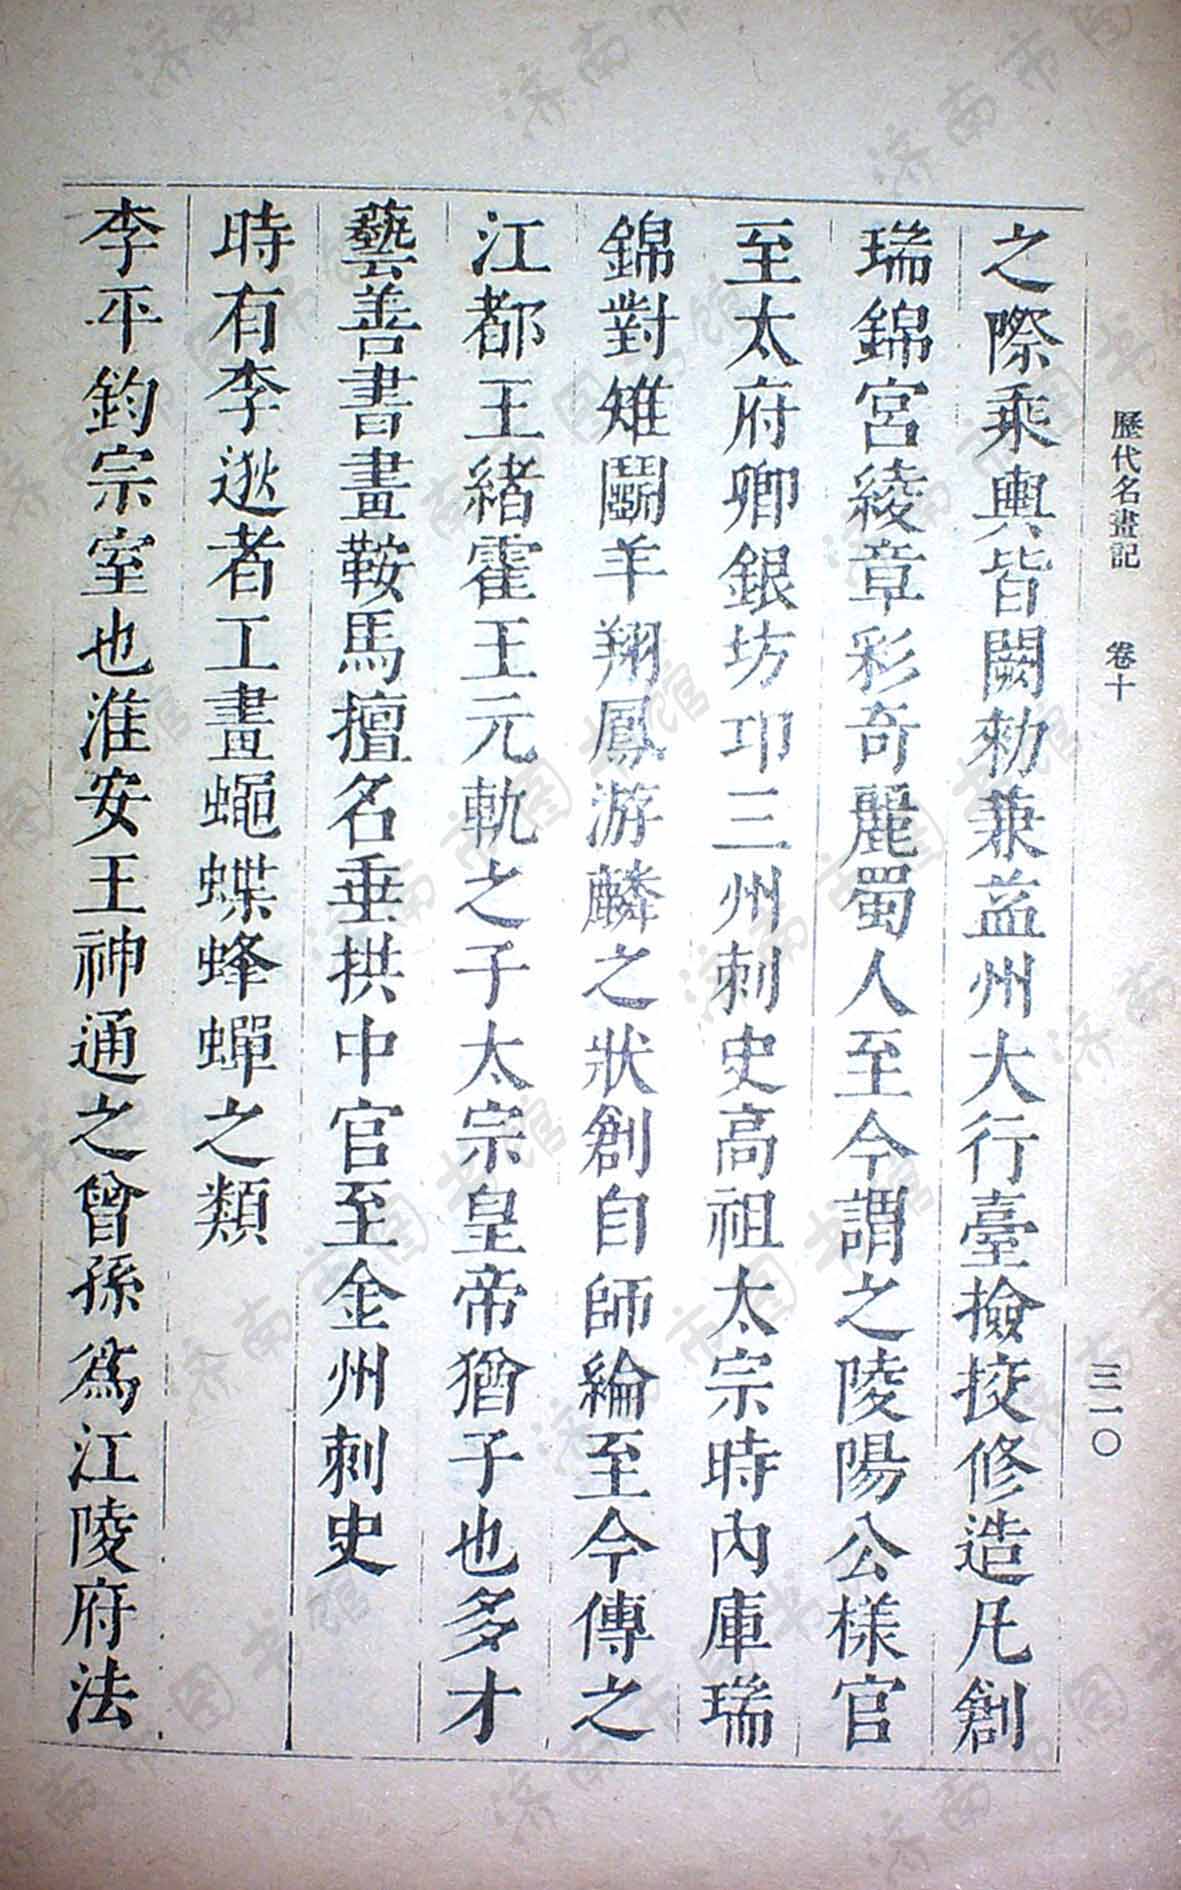 歷代名畫記 卷十 三一〇
之際乘輿皆闕勑兼益州大行臺撿挍修造凡創
瑞錦宮綾章彩奇麗蜀人至今謂之陵陽公樣官
至太府卿銀坊邛三州刺史高祖太宗時內庫瑞
錦對雉鬭羊翔鳳游麟之狀創自師綸至今傳之
江都王緒霍王元軌之子太宗皇帝猶子也多才
藝善書畫鞍馬擅名垂拱中官至金州刺史
時有李逖者工畫蠅蝶蜂蟬之類
李平鈞宗室也淮安王神通之曾孫爲江陵府法
济南市图书馆